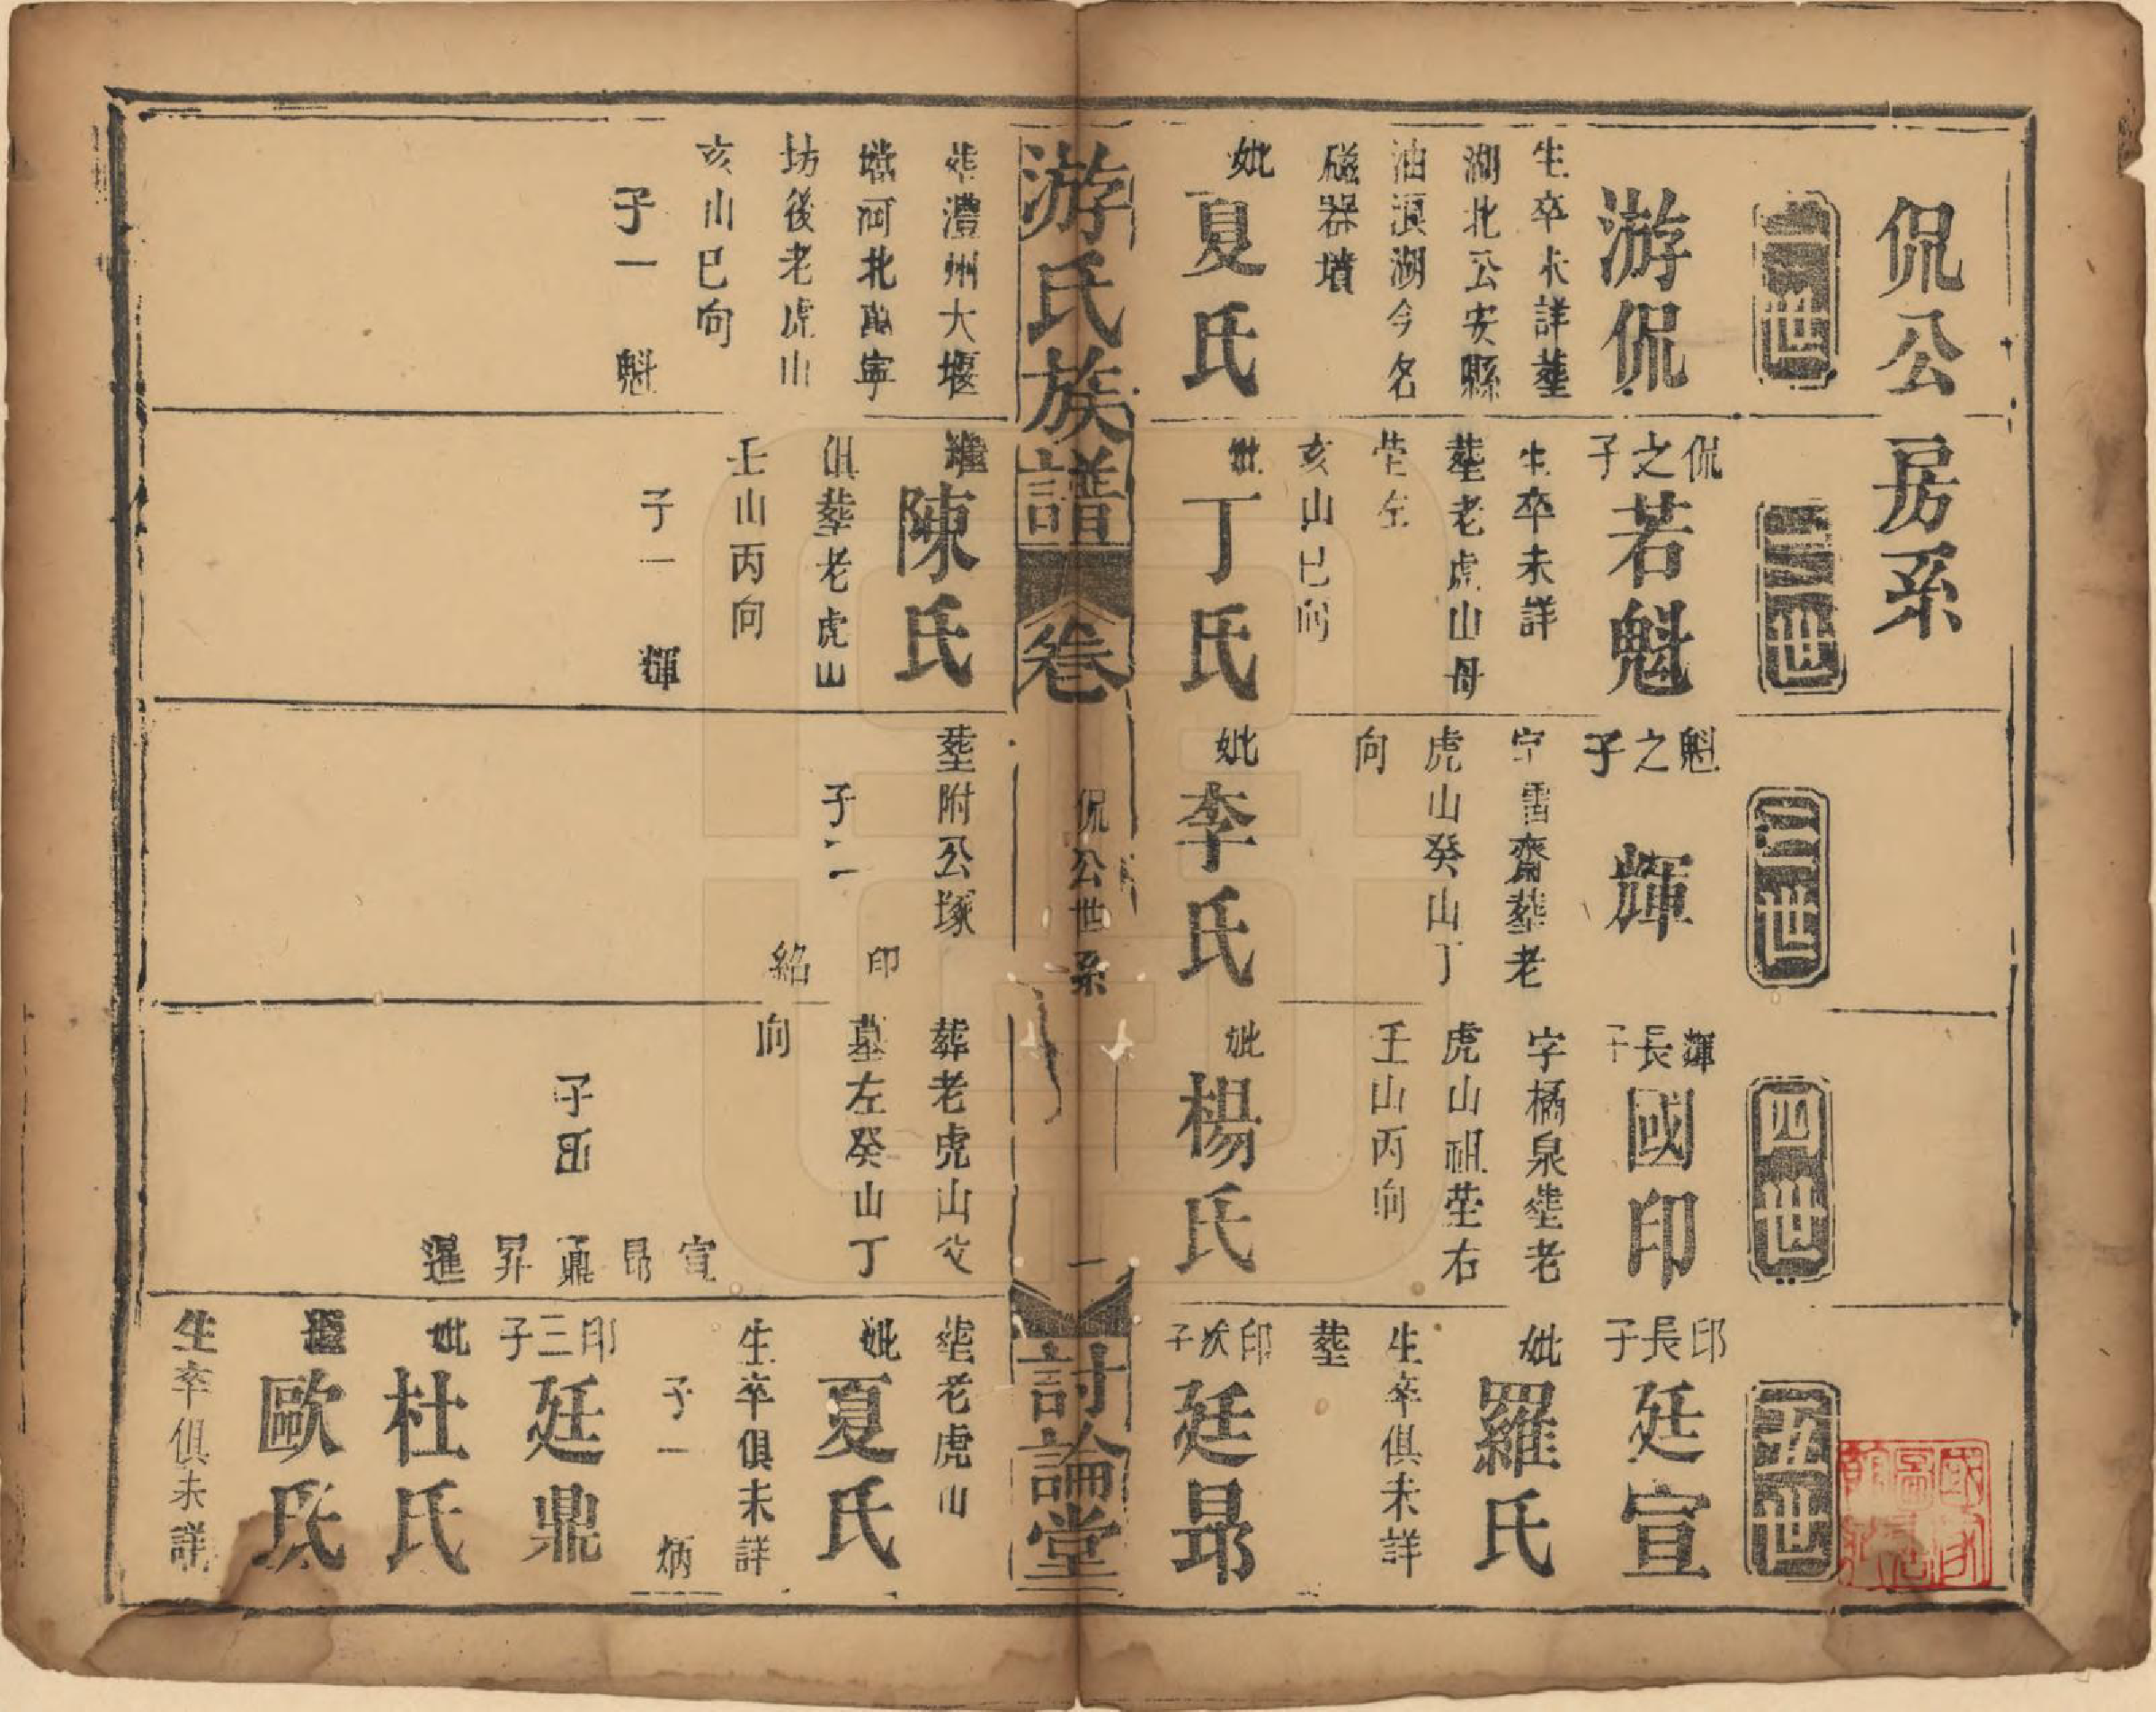 侃公房系
一世
游侃
生卒未詳塟
湖北公安縣
油浪湖今名
磁器墳
妣夏氏
塟澧州大堰
壋河北萬寧
坊後老虎山
亥山巳向
子一 魁
二世
侃之子
若魁
生卒未詳
塟老虎山母
茔左
亥山巳向
妣丁氏
繼陳氏
俱塟老虎山
壬山丙向
子一 輝
三世
魁之子
輝
字雪齋塟老
虎山癸山丁
向
妣李氏
塟附公塚
子二
印
紹
四世
輝長子
國印
字橘泉塟老
虎山祖茔右
壬山丙向
妣楊氏
葬老虎山父
墓左癸山丁
向
子五
宣
昂
鼎
昇
暹
五世
印長子
廷宣
妣羅氏
生卒俱未詳
塟
印次子
廷昂
塟老虎山
妣夏氏
生卒俱未詳
子一 炳
印三子
廷鼎
妣杜氏
繼歐氏
生卒俱未詳
游氏族譜
卷
侃公世系
一
討論堂